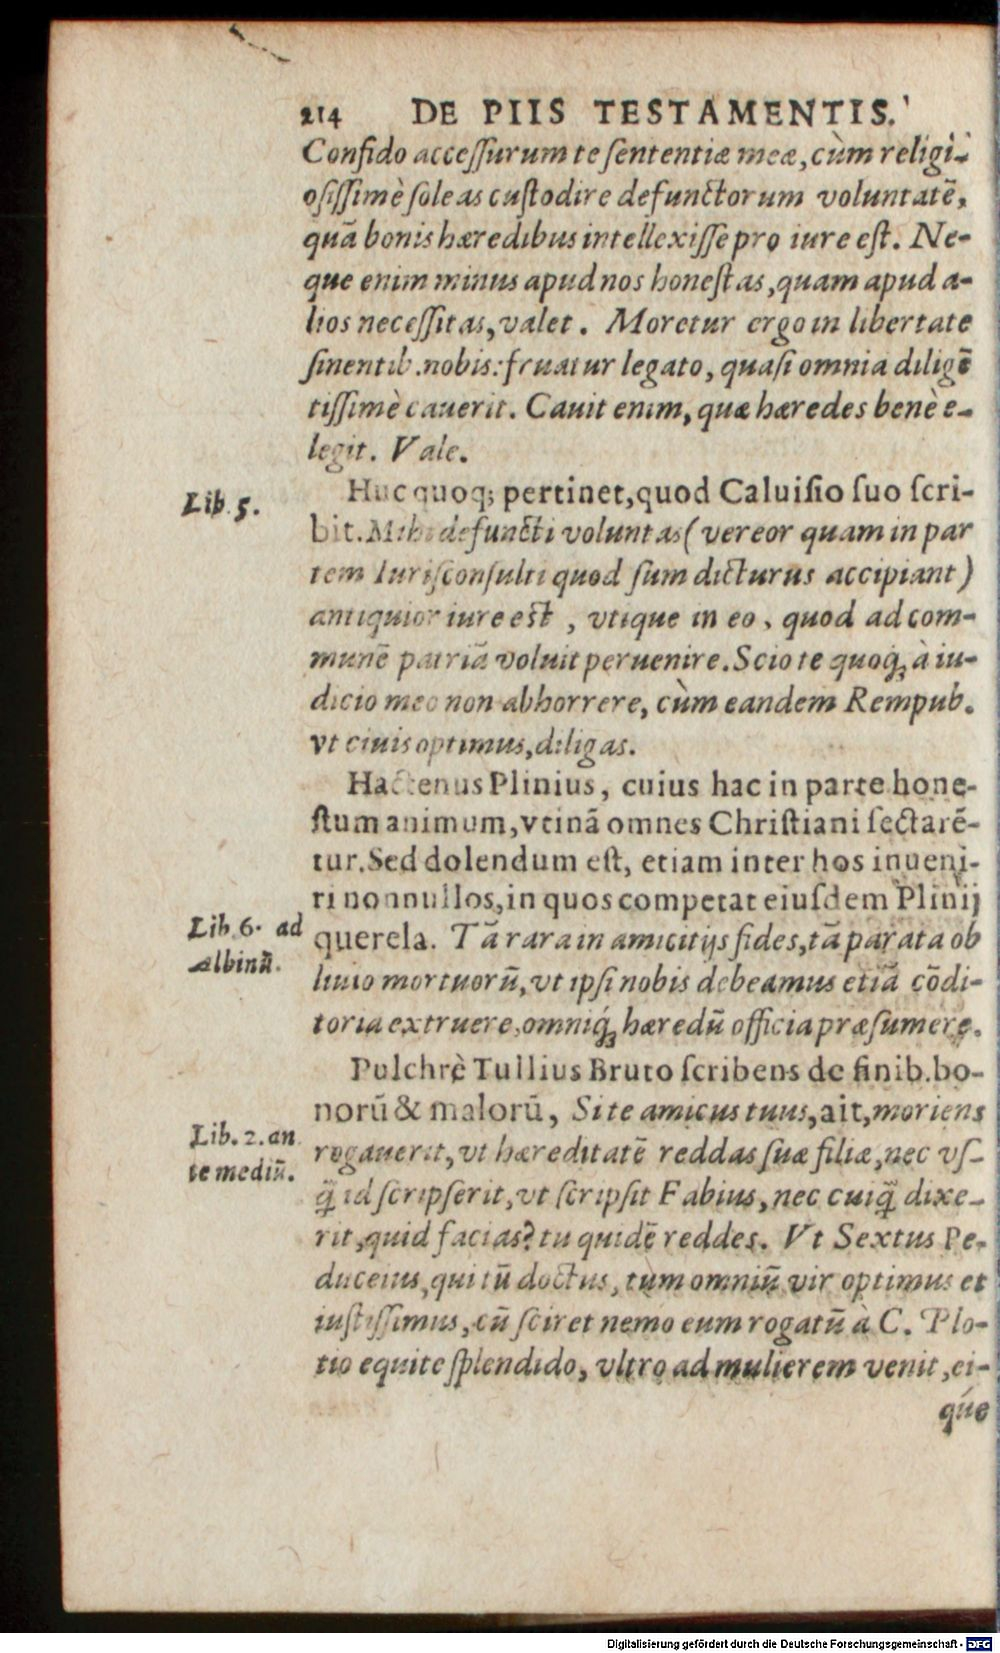 214 DE PIIS TESTAMENTIS.
Confido accessurum te sententiæ meæ, cùm religi-
osissimè soleas custodire defunctorum voluntatē,
quā bonis hæredibus intellexisse pro iure est. Ne-
que enim minus apud nos honestas, quam apud a-
lios necessitas, valet. Moretur ergo in libertate
sinentib. nobis: fruatur legato, quasi omnia diligē
tissimè cauerit. Cauit enim, quæ hæredes benè e-
legit. Vale.
Lib. 5.
Huc quoq; pertinet, quod Caluisio suo scri-
bit. Mihi defuncti voluntas (vereor quam in par
tem Iurisconsulti quod sum dicturus accipiant)
antiquior iure est, vtique in eo, quod ad com-
munē patriā voluit peruenire. Scio te quoq; à iu-
dicio meo non abhorrere, cùm eandem Rempub.
vt ciuis optimus, diligas.
Hactenus Plinius, cuius hac in parte hone-
stum animum, vtinā omnes Christiani sectarē-
tur. Sed dolendum est, etiam inter hos inueni-
ri nonnullos, in quos competat eiusdem Plinij
Lib. 6. ad
albinū.
querela. Tā rara in amicitijs fides, tā parata ob
liuio mortuorū, vt ipsi nobis debeamus etiā cōdi-
toria extruere, omniq; hæredū officia præsumere.
Pulchrè Tullius Bruto scribens de finib. bo-
norū & malorū, Si te amicus tuus, ait, moriens
Lib. 2. an
te mediū.
rogauerit, vt hæreditatē reddas suæ filiæ, nec vs-
q̄ id scripserit, vt scripsit Fabius, nec cuiq̄ dixe-
rit, quid facias? tu quidē reddes. Vt Sextus Pe-
duceius, qui tū doctus, tum omniū vir optimus et
iustissimus, cū sciret nemo eum rogatū à C. Plo-
tio equite splendido, vltro ad mulierem venit, ei-
que
Digitalisierung gefördert durch die Deutsche Forschungsgemeinschaft - DFG